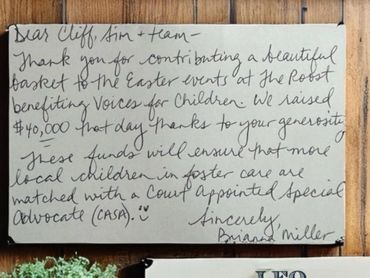 Dear Cliff, Jim + team-
Thank you for contributing a beautiful
basket to the Easter events at The Robst
benefiting Voices for Children. We raised
$40,000 that day thanks to your generosity
These funds will ensure that more
local children in foster care are
matched with a Court Appointed Special
Advocate (CASA). ☺
Sincerely,
Brianna Miller
LEO